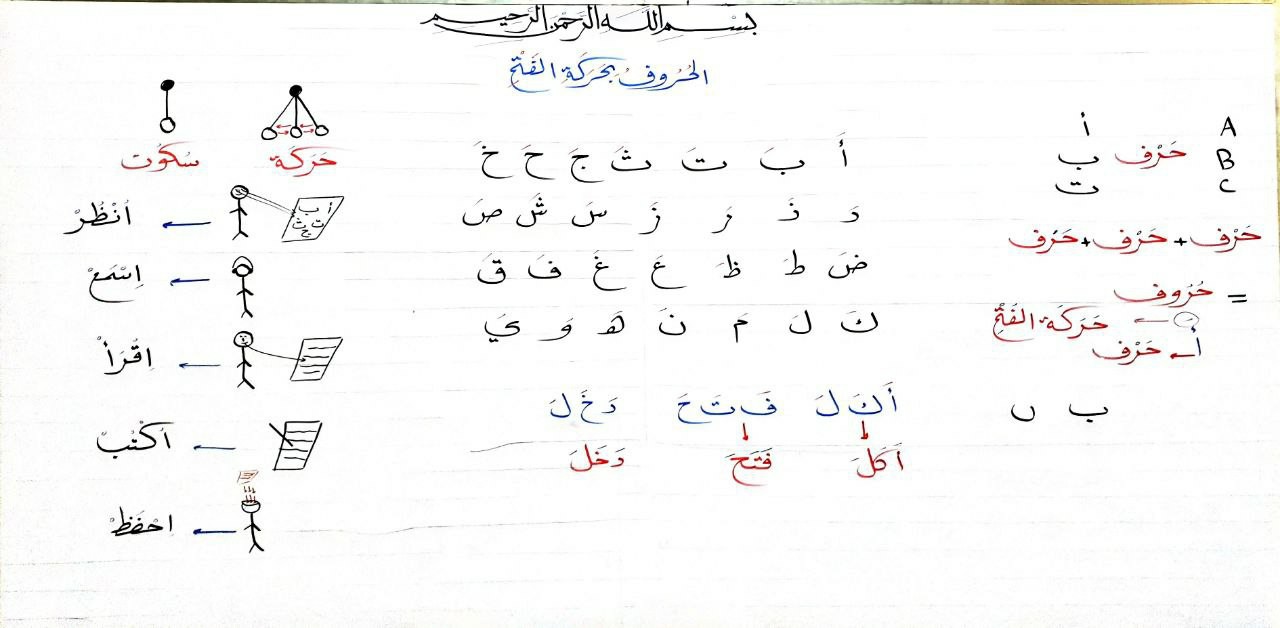 بِسْمِ اللَّهِ الرَّحْمَنِ الرَّحِيمِ
الحُرُوفُ بِحَرَكَةِ الفَتْحِ
A أ
B ب حَرْف
C ت
حَرْف + حَرْف + حَرْف
= حُرُوف
حَرَكَة الفَتْحِ
أ ← حَرْف
ب ں
أَ بَ تَ ثَ جَ حَ خَ
دَ ذَ رَ زَ سَ شَ صَ
ضَ طَ ظَ عَ غَ فَ قَ
كَ لَ مَ نَ هَ وَ يَ
أَ كَ لَ فَ تَ حَ دَ خَ لَ
أَكَلَ فَتَحَ دَخَلَ
حَرَكَة سُكُوت
أ ب
ت ث
ج
اُنْظُرْ
اِسْمَعْ
اِقْرَأْ
اُكْتُبْ
اِحْفَظْ